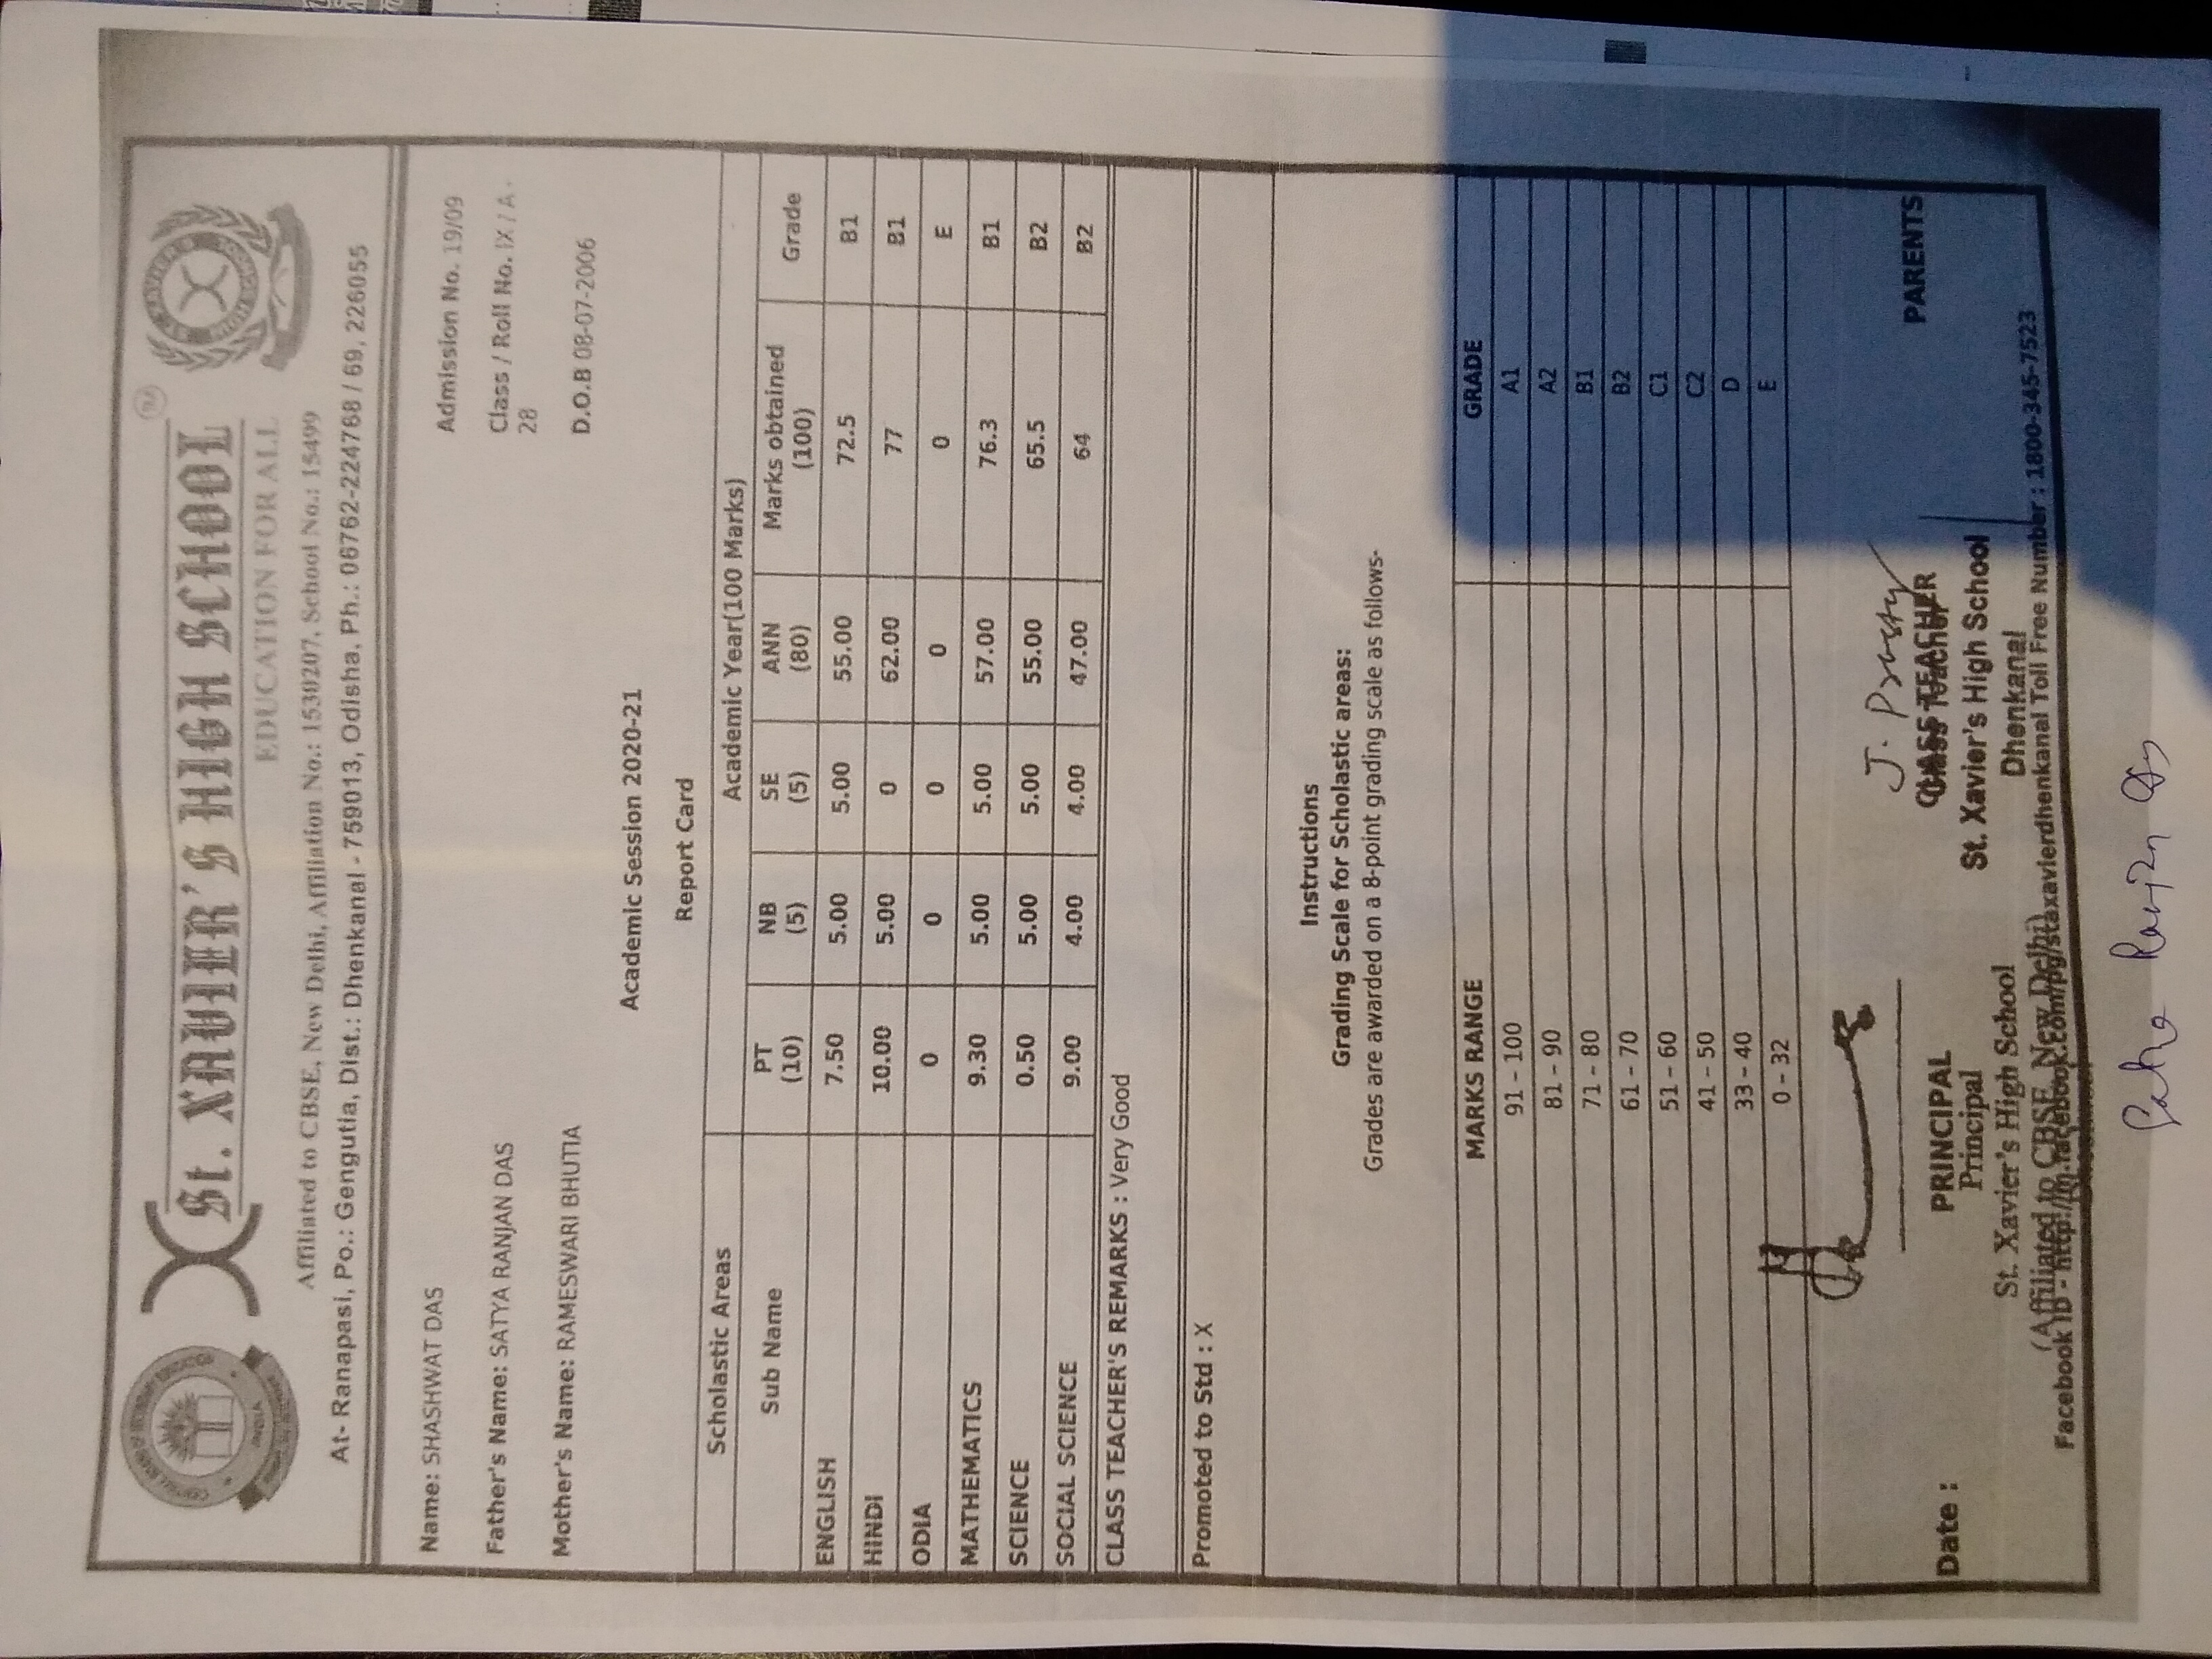 St. XAVIER'S HIGH SCHOOL
EDUCATION FOR ALL
Affiliated to CBSE, New Delhi, Affiliation No.: 1530207, School No.: 15499
At- Ranapasi, Po.: Gengutia, Dist.: Dhenkanal - 759013, Odisha, Ph.: 06762-224768 / 69, 226055
Name: SHASHWAT DAS Admission No. 19/09
Father's Name: SATYA RANJAN DAS Class / Roll No. IX / A.
28
Mother's Name: RAMESWARI BHUTIA D.O.B 08-07-2006
Academic Session 2020-21
Report Card
Scholastic Areas Academic Year(100 Marks)
Sub Name PT (10) NB (5) SE (5) ANN (80) Marks obtained (100) Grade
ENGLISH 7.50 5.00 5.00 55.00 72.5 B1
HINDI 10.00 5.00 0 62.00 77 B1
ODIA 0 0 0 0 0 E
MATHEMATICS 9.30 5.00 5.00 57.00 76.3 B1
SCIENCE 0.50 5.00 5.00 55.00 65.5 B2
SOCIAL SCIENCE 9.00 4.00 4.00 47.00 64 B2
CLASS TEACHER'S REMARKS : Very Good
Promoted to Std : X
Instructions
Grading Scale for Scholastic areas:
Grades are awarded on a 8-point grading scale as follows-
MARKS RANGE GRADE
91 - 100 A1
81 - 90 A2
71 - 80 B1
61 - 70 B2
51 - 60 C1
41 - 50 C2
33 - 40 D
0 - 32 E
Date : PRINCIPAL CLASS TEACHER PARENTS
Principal Class Teacher
St. Xavier's High School St. Xavier's High School
(Affiliated to CBSE, New Delhi) Dhenkanal
Facebook ID - http://m.facebook.com/pg/staxavierdhenkanal Toll Free Number : 1800-345-7523